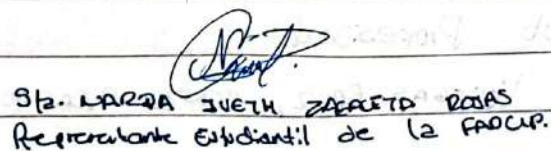 Srta. NARDA IVETH ZACALETA ROJAS
Representante Estudiantil de la FADCIP.